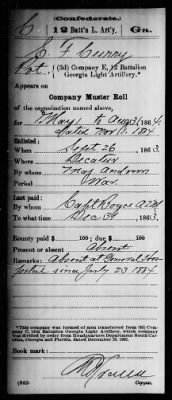 C (Confederate.) Ga.
12 Batt'n L. Art'y.
C. F. Curry
Pvt. (3d) Company E, 12 Battalion
Georgia Light Artillery.*
Appears on
Company Muster Roll
of the organization named above,
for May 1 to Aug 31, 1864.
dated Nov 1864
Enlisted:
When Sept 26, 1863
Where Decatur
By whom Maj Andrews
Period War
Last paid:
By whom Capt
To what time Dec 31, 1863.
Bounty paid $ 100; due $ 100
Present or absent Absent
Remarks: Absent at General Hos
pital since July 23 1864
*This company was formed of men transferred from
Georgia Light Artillery, which company was
divided by order from Headquarters Department South Car-
olina, Georgia and Florida, dated December
Book mark:
(642) Copyist.